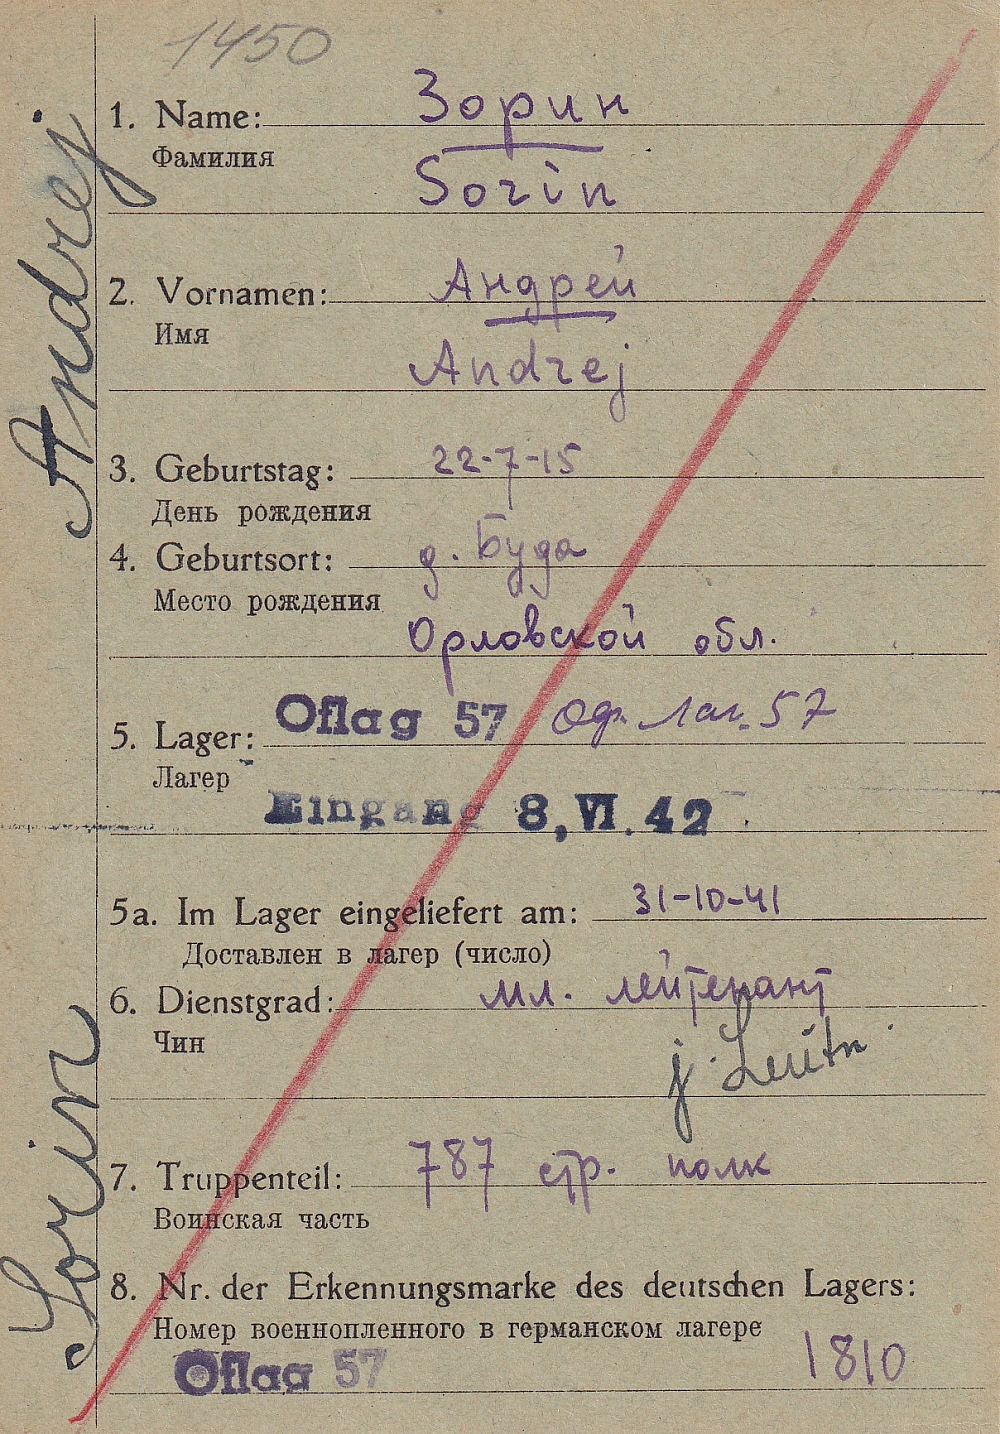 1450
1. Name: Зорин
Фамилия
Sorin
2. Vornamen: Андрей
Имя
Andrej
3. Geburtstag: 22-7-15
День рождения
4. Geburtsort: д. Буда
Место рождения
Орловской обл.
5. Lager: Oflag 57 Оф. Лаг. 57
Лагер
Eingang 8, VI. 42
5a. Im Lager eingeliefert am: 31-10-41
Доставлен в лагер (число)
6. Dienstgrad: мл. лейтенант
Чин
j. Leutn.
7. Truppenteil: 787 стр. полк
Воинская часть
8. Nr. der Erkennungsmarke des deutschen Lagers:
Номер военнопленного в германском лагере
Oflag 57 1810
Sorin Andrej